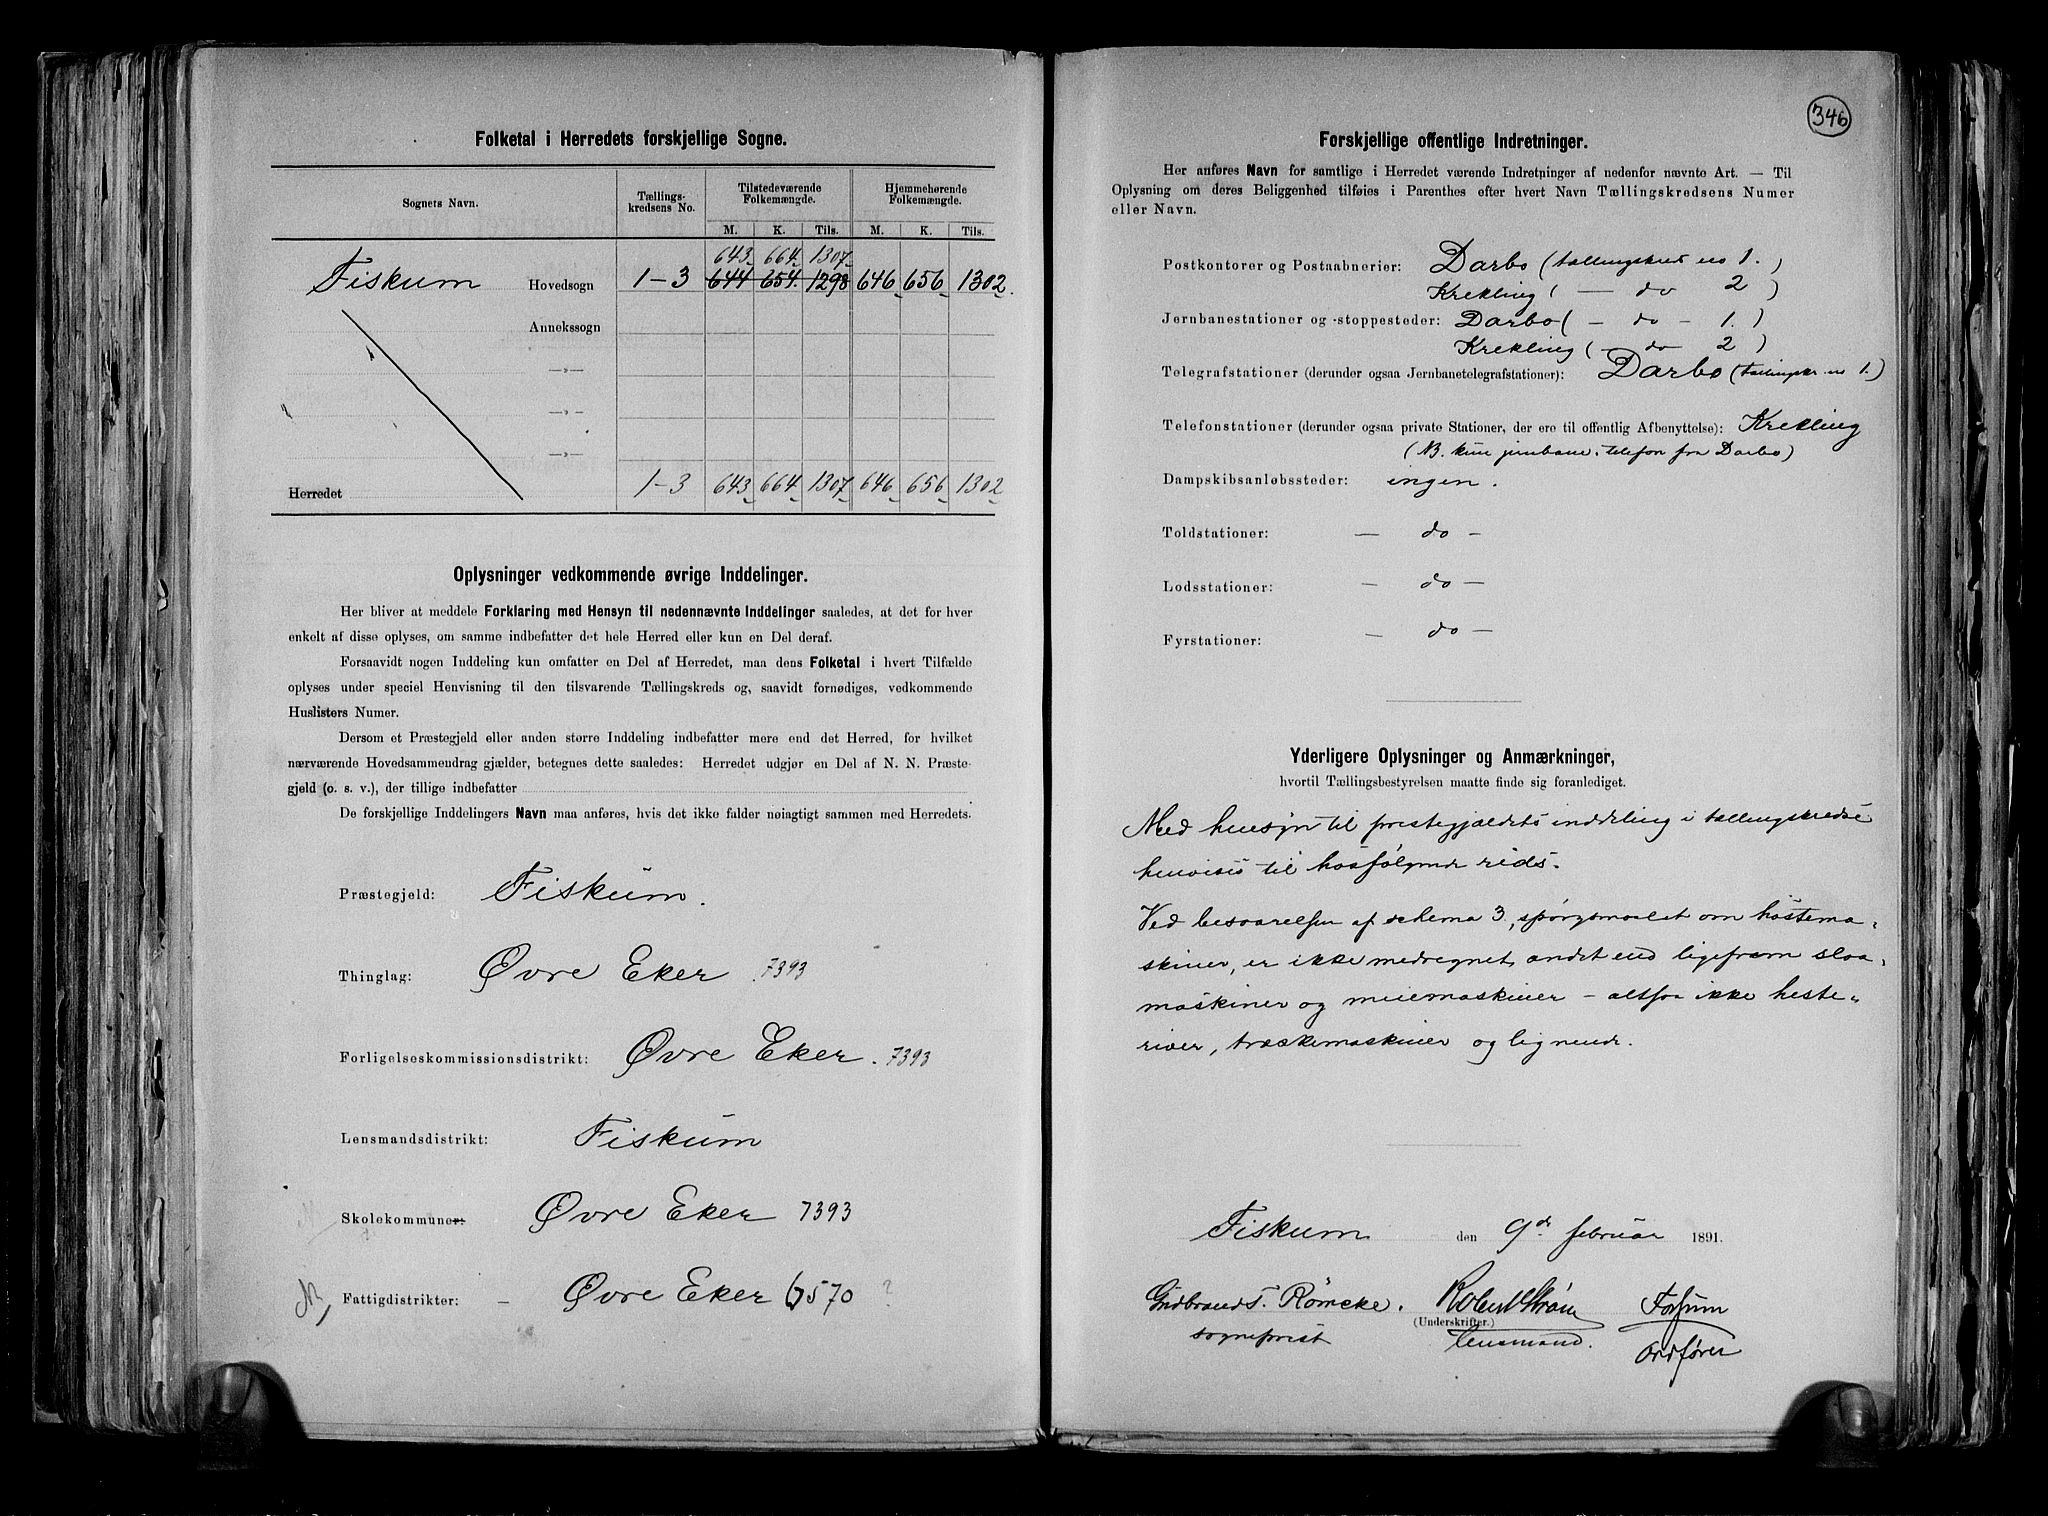 Folketal i Herredets forskjellige Sogne.
Sognets Navn. Tællings- kredsens No. Tilstedeværende Folkemængde. Hjemmehørende Folkemængde.
M. K. Tils. M. K. Tils.
643 664 1307
Fiskum Hovedsogn 1-3 644 654 1298 646 656 1302.
Annekssogn
—„—
—„—
—„—
Herredet 1-3 643 664 1307 646 656 1302
Oplysninger vedkommende øvrige Inddelinger.
Her bliver at meddele Forklaring med Hensyn til nedennævnte Inddelinger saaledes, at det for hver
enkelt af disse oplyses, om samme indbefatter det hele Herred eller kun en Del deraf.
Forsaavidt nogen Inddeling kun omfatter en Del af Herredet, maa dens Folketal i hvert Tilfælde
oplyses under speciel Henvisning til den tilsvarende Tællingskreds og, saavidt fornødiges, vedkommende
Huslisters Numer.
Dersom et Præstegjeld eller anden større Inddeling indbefatter mere end det Herred, for hvilket
nærværende Hovedsammendrag gjælder, betegnes dette saaledes: Herredet udgjør en Del af N. N. Præste-
gjeld (o. s. v.), der tillige indbefatter
De forskjellige Inddelingers Navn maa anføres, hvis det ikke falder nøiagtigt sammen med Herredets.
Præstegjeld: Fiskum.
Thinglag: Øvre Eker. 7393
Forligelseskommissionsdistrikt: Øvre Eker. 7393
Lensmandsdistrikt: Fiskum
Skolekommuner: Øvre Eker 7393
Fattigdistrikter: — Øvre Eker 7570 ?
346
Forskjellige offentlige Indretninger.
Her anføres Navn for samtlige i Herredet værende Indretninger af nedenfor nævnte Art. — Til
Oplysning om deres Beliggenhed tilføies i Parenthes efter hvert Navn Tællingskredsens Numer
eller Navn.
Postkontorer og Postaabnerier: Darbo (tællingskred no 1.)
Krekling ( — do 2 )
Jernbanestationer og -stoppesteder: Darbo ( — do — 1. )
Krekling ( — do 2 )
Telegrafstationer (derunder ogsaa Jernbanetelegrafstationer): Darbo (tællingskr. no 1.)
Telefonstationer (derunder ogsaa private Stationer, der ere til offentlig Afbenyttelse): Krekling
(NB. kun jernbane. telefon fra Darbo)
Dampskibsanløbssteder: ingen.
Toldstationer: — do —
Lodsstationer: — do —
Fyrstationer: — do —
Yderligere Oplysninger og Anmærkninger,
hvortil Tællingsbestyrelsen maatte finde sig foranlediget.
Med hensyn til prestegjældets inddeling i tællingskredse
henvises til hosfølgende rids.
Ved besvarelsen af schema 3, spørgsmaalet om høstema-
skiner, er ikke medregnet andet end ligefrem slaa-
maskiner og meiemaskiner – altsaa ikke heste-
river, træskemaskiner og lignende.
Fiskum den 9de februar 1891.
Gudbrand T. Rømcke. Robert Strøm Fossum
(Underskrifter.)
sogneprest lensmand. Ordfører